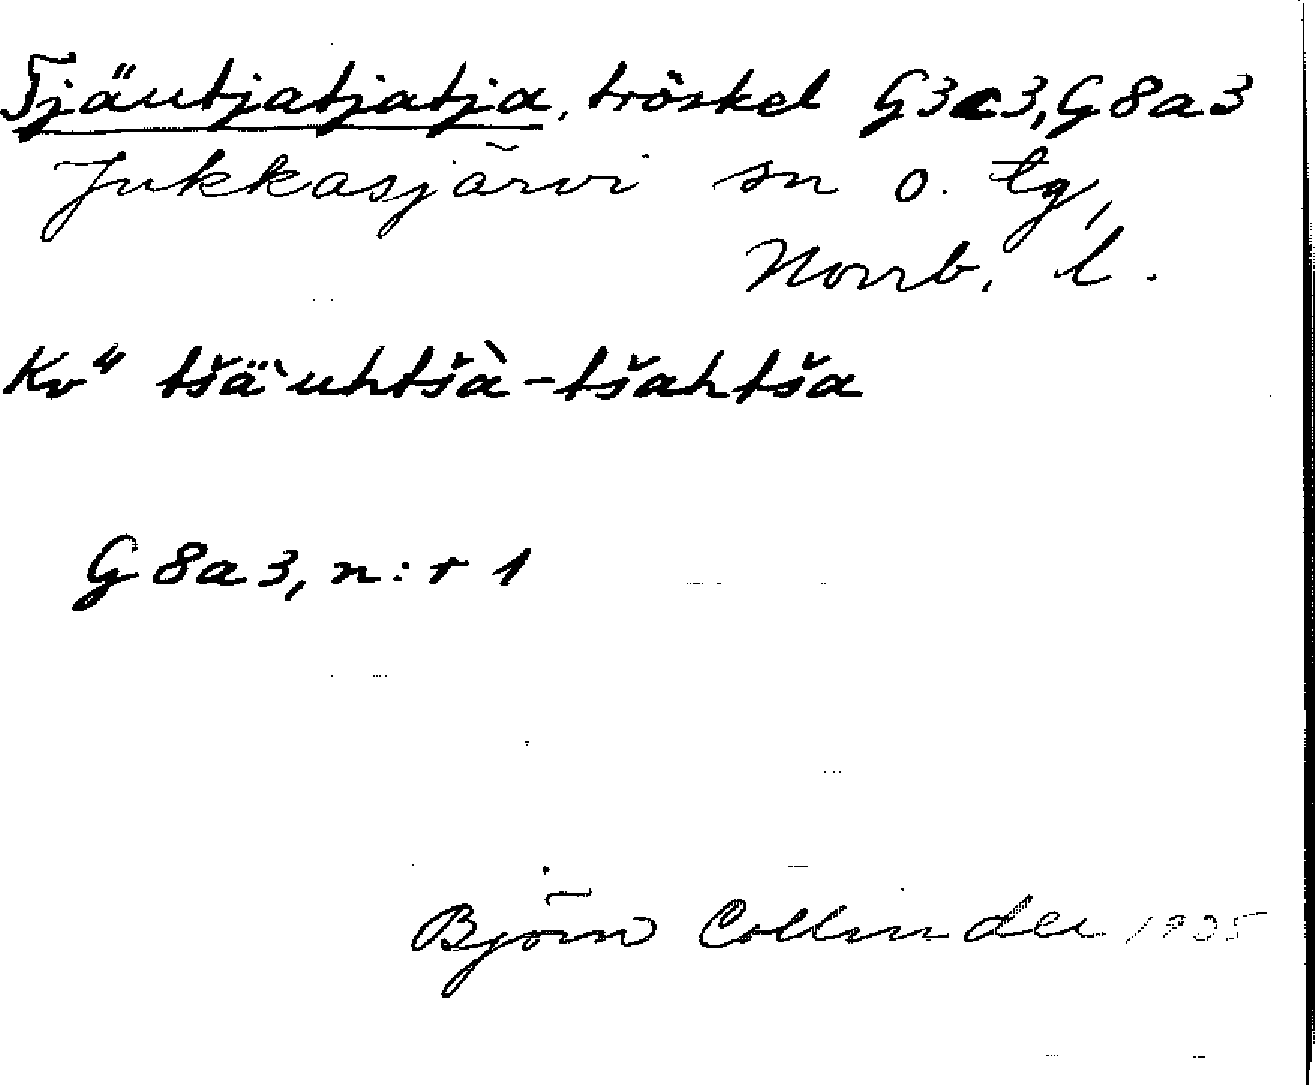 Tjäutjatjatja, tröskel G3c3, G8a3
Jukkasjärvi sn o. tg,
Norrb. l.
Kv" tšä`uhtšà-tšahtša
G8a3, n:r 1
Björn Collinder 1935